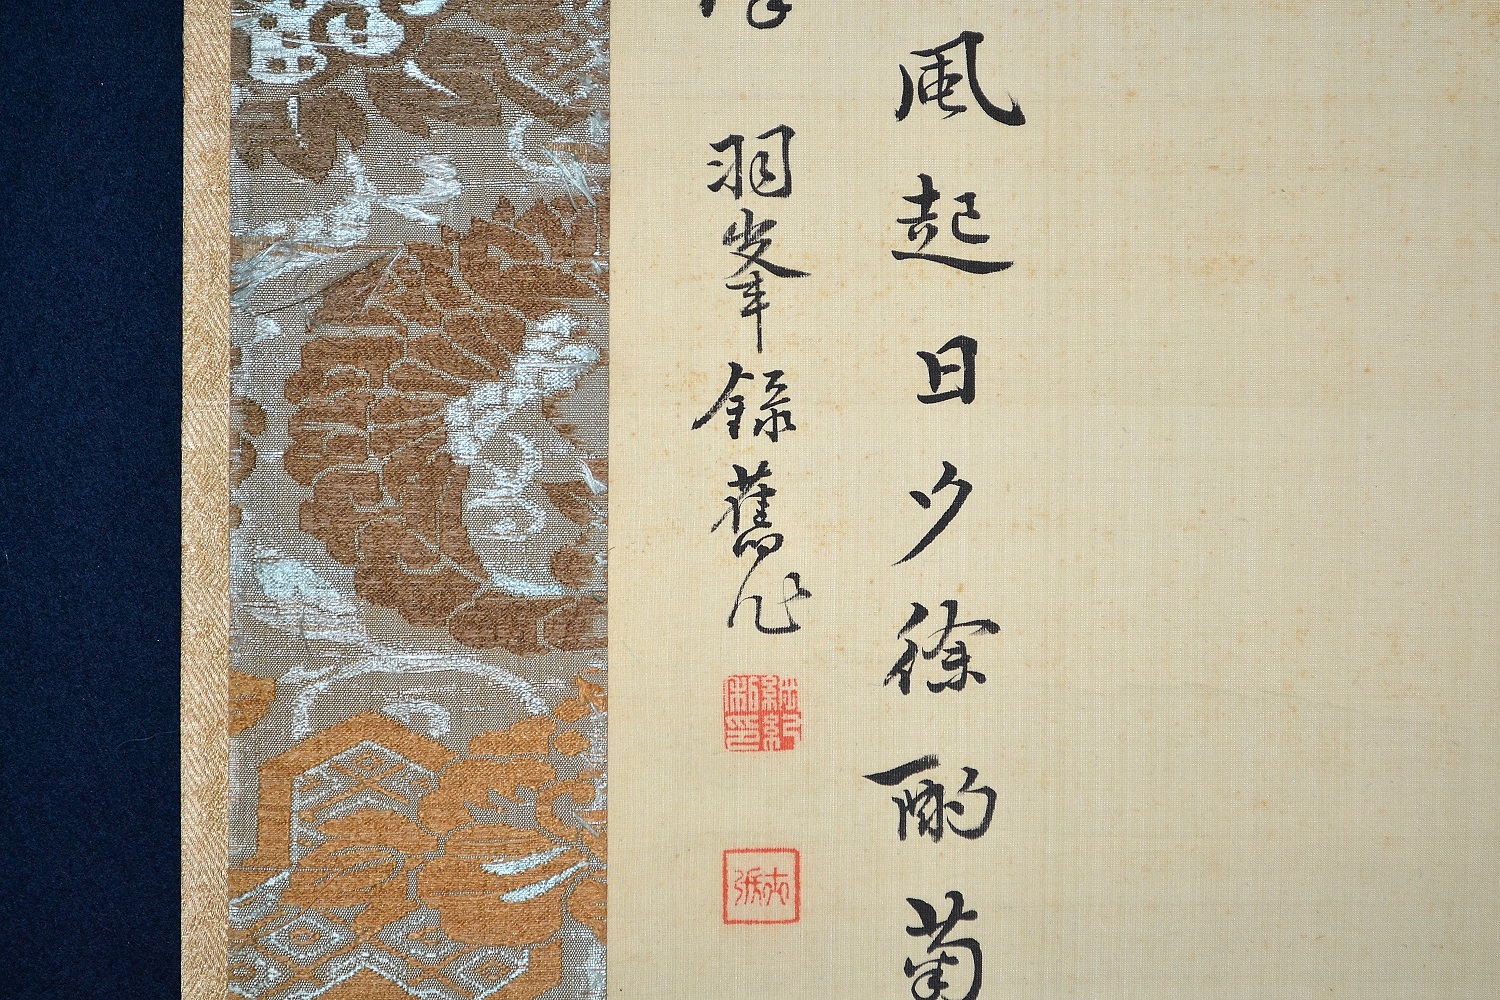 風起日夕徐酌菊
羽峯錄舊作